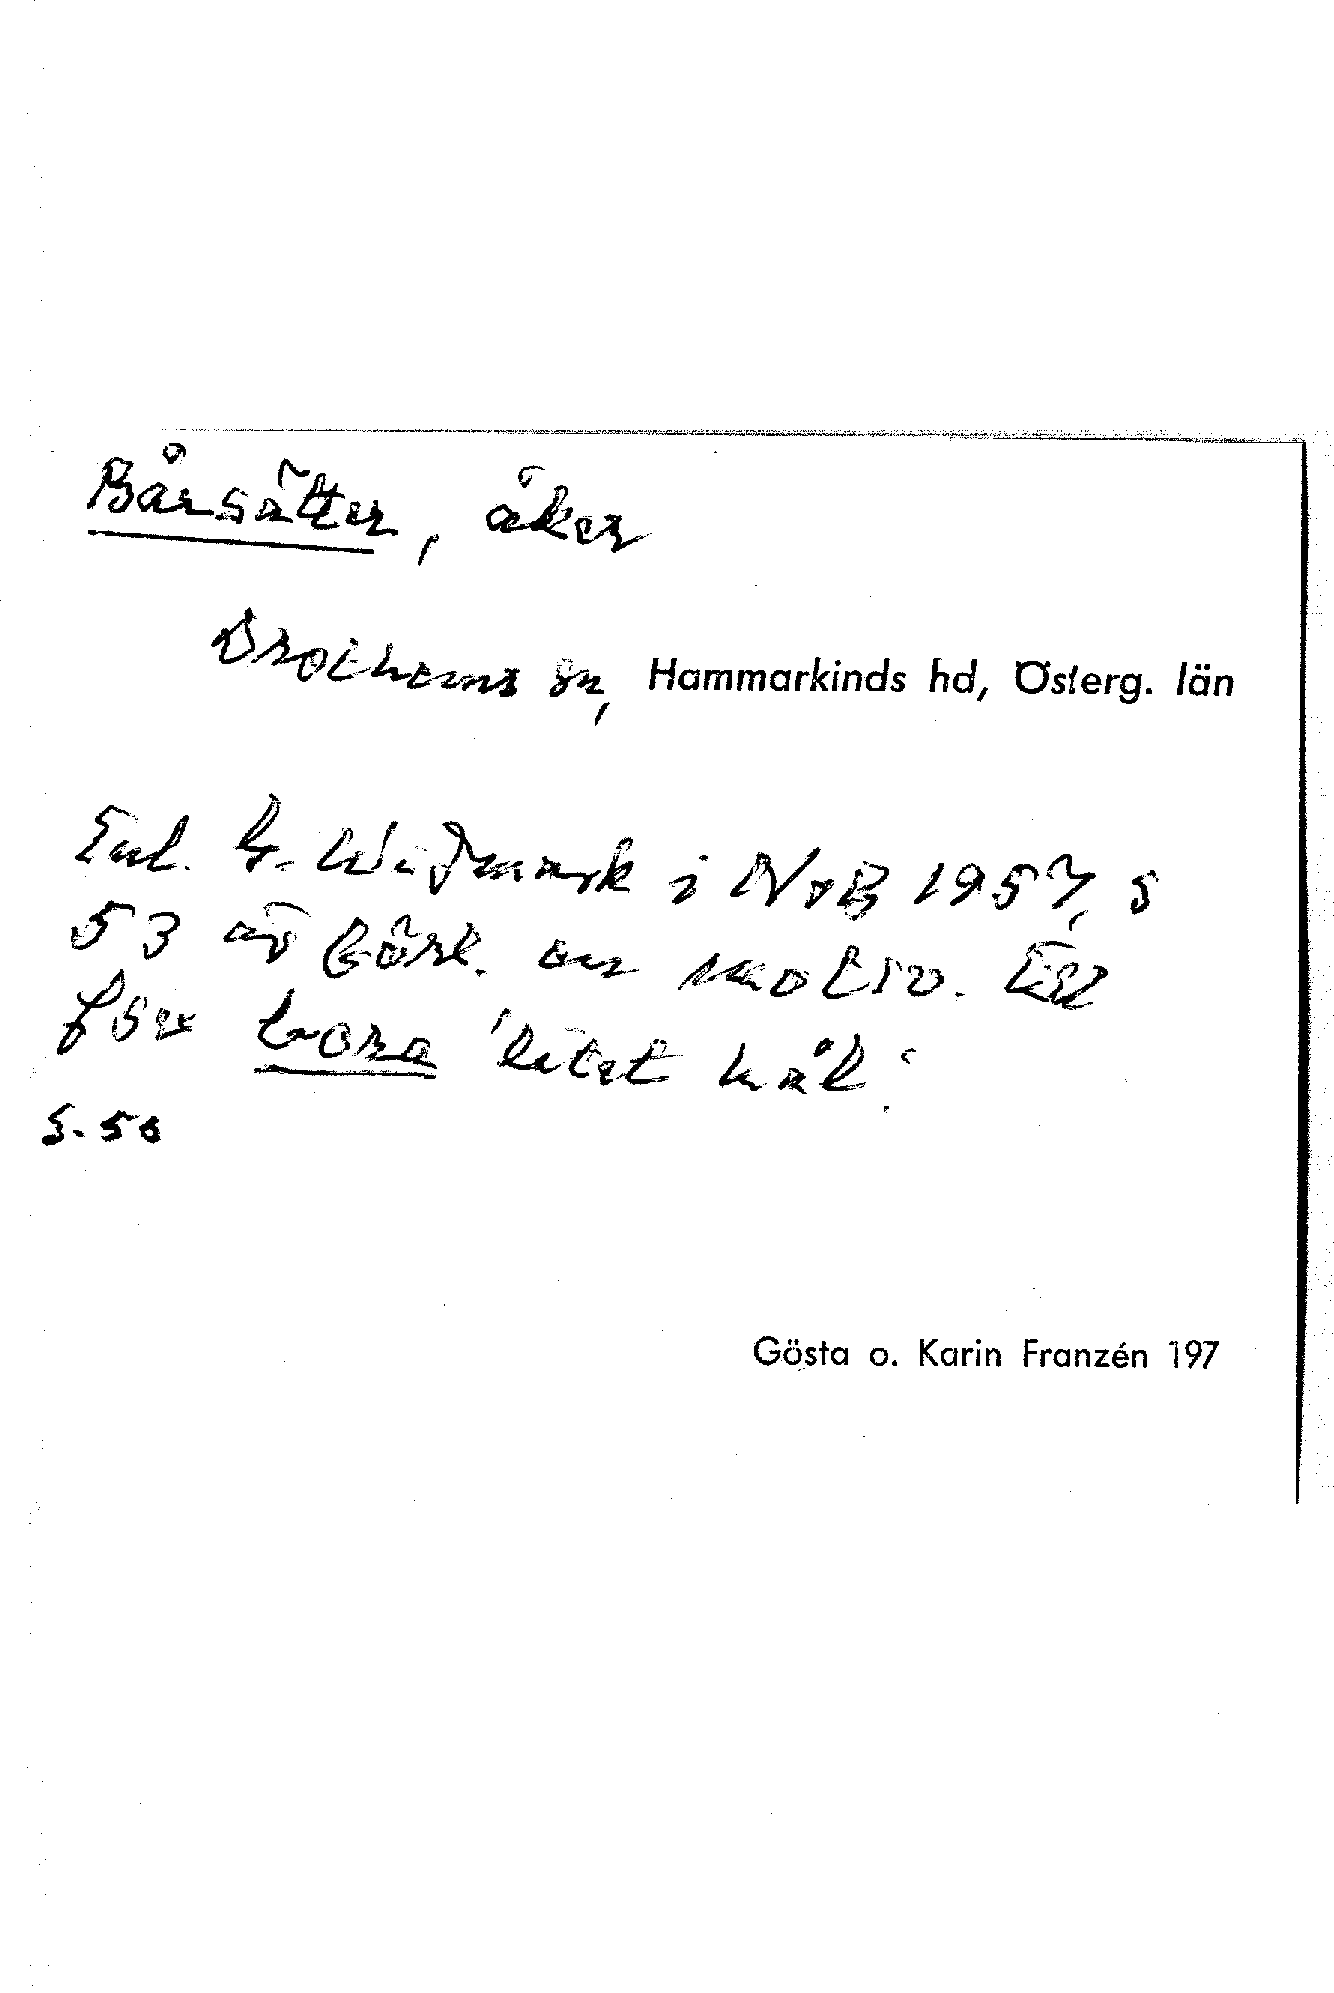 Bårsätter, åker
Drothems sn, Hammarkinds hd, Österg. län
Enl. G. Widmark i NoB 1957, s
53 av förl. en motiv. Ell
för bora 'litet hål'.
S. 56
Gösta o. Karin Franzén 197